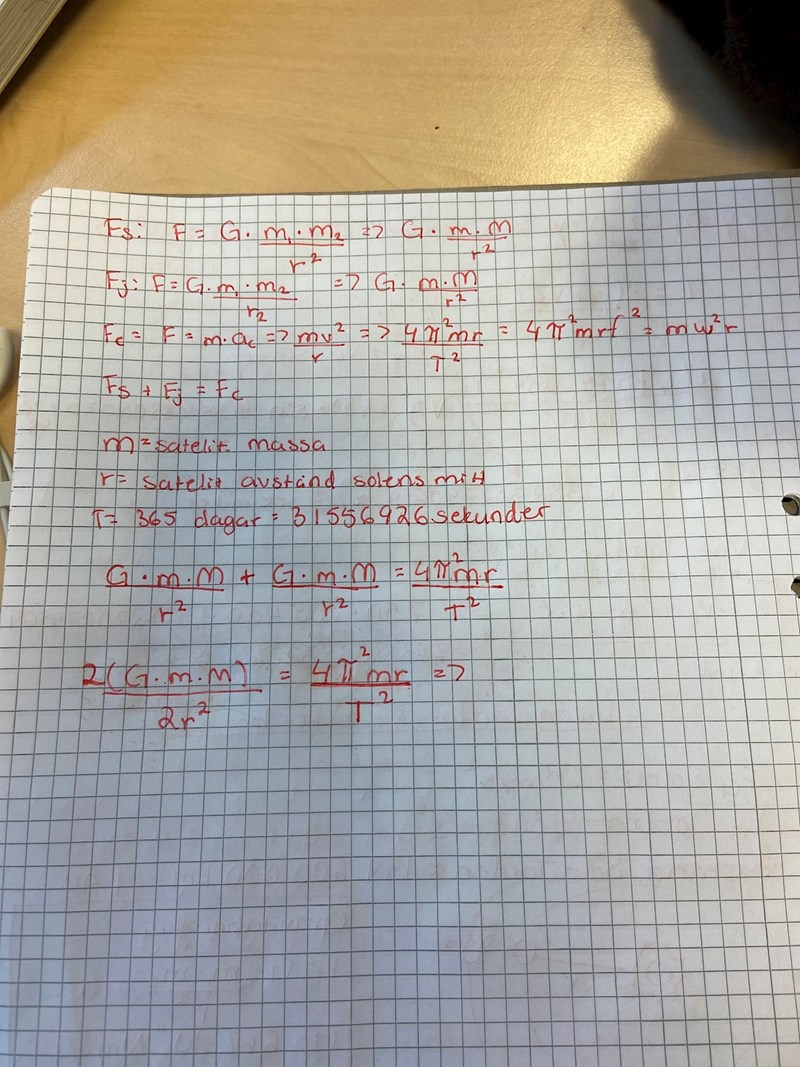 Fs: F = G · m₁ · m₂ / r² => G · m · M / r²
Fj: F = G · m₁ · m₂ / r₂ => G · m · M / r²
Fc = F = m · ac => mv² / r => 4π²mr / T² = 4π²mrf² = mω²r
Fs + Fj = Fc
m = satelit massa
r = satelit avstånd solens mitt
T = 365 dagar = 31556926 sekunder
G · m · M / r² + G · m · M / r² = 4π²mr / T²
2(G · m · M) / 2r² = 4π²mr / T² =>